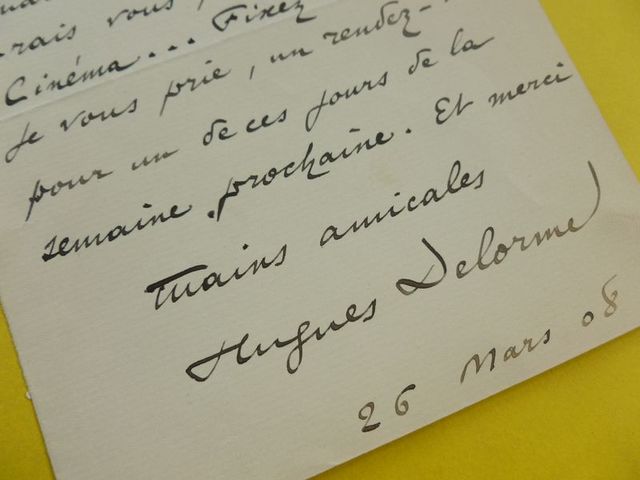 rais vous,
Cinéma... Fixez
je vous prie, un rendez-
pour un de ces jours de la
semaine prochaine. Et merci
Mains amicales
Hugues Delorme
26 Mars 08